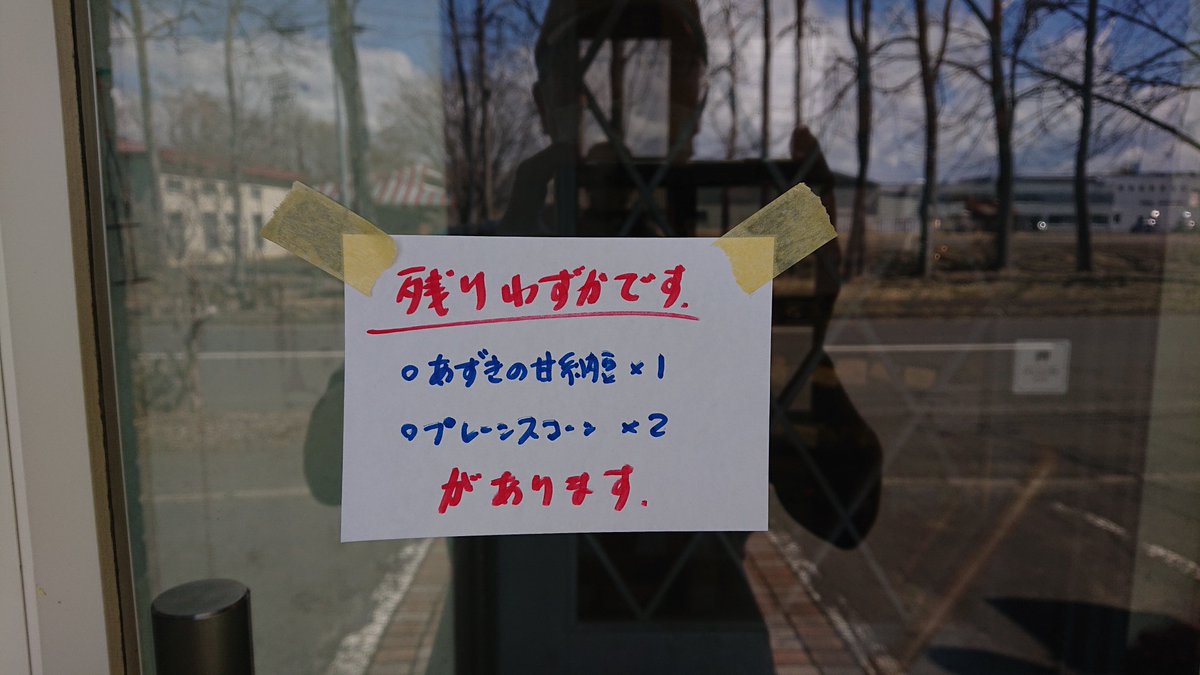 残りわずかです.
○あずきの甘納豆×1
○プレーンスコーン ×2
があります.